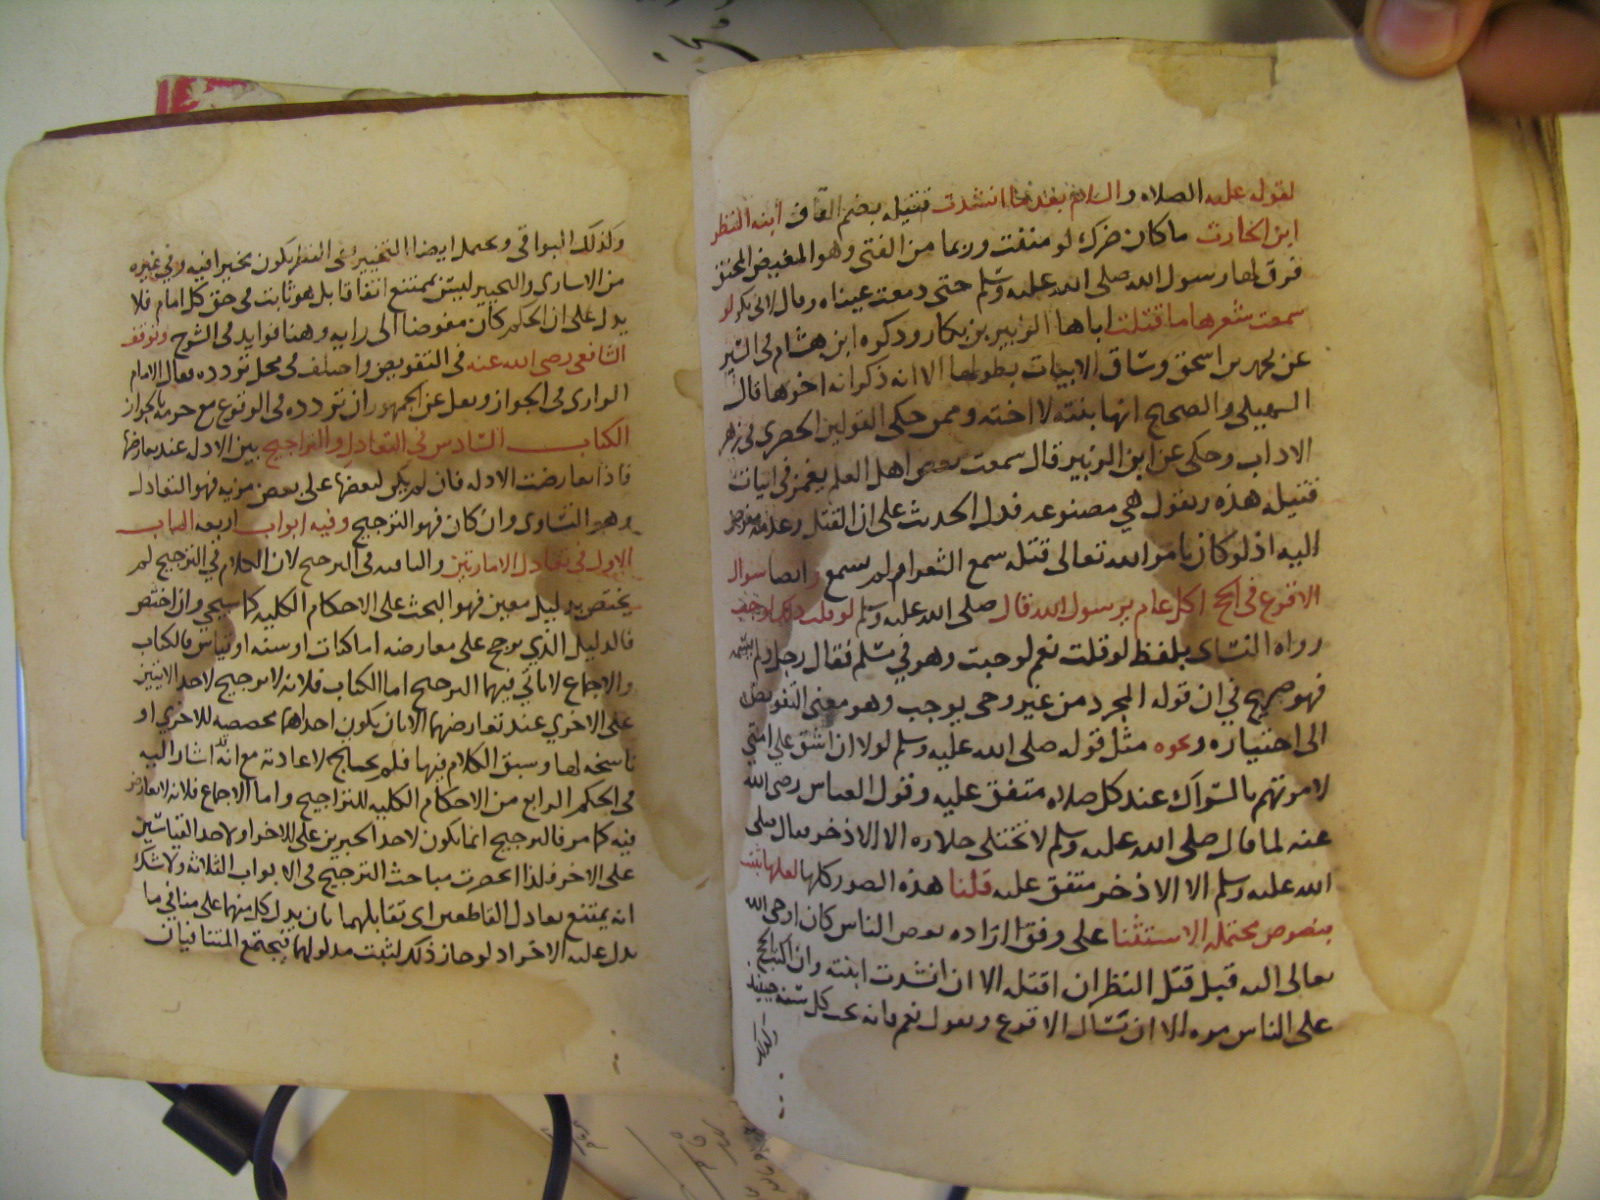 لقوله عليه الصلاه والسلام بعد ما انشدت قتيله بضم القاف ابنه النظر
ابن الحارث ما كان ضرك لو مننت وربما من الفتى وهو المغيض المحنق
فرق لها رسول الله صلى الله عليه وسلم حتى دمعت عيناه وقال لابى بكر لو
سمعت شعرها ما قتلت اباها الزبير بن بكار وذكره ابن هشام فى السير
عن محمد بن اسحق وساق الابيات بطولها الا انه ذكر انه اخوها قال
السهيلى والصحيح انها بنته لا اخته وممن حكى القولين الحصرى فى زهر
الاداب وحكى عن ابن الزبير قال سمعت بعض اهل العلم يغمز فى ابيات
قتيله هذه ويقول هي مصنوعه فدل الحديث على ان القتل وعدمه مفوض
اليه اذ لو كان بامر الله تعالى قتله سمع الشعر ام لم يسمع وايضا سوال
الاقرع فى الحج اكل عام يرسول الله قال صلى الله عليه وسلم لو قلت ذلك لوجب
رواه النساى بلفظ لو قلت نعم لوجبت وهو في مسلم فقال رجل ولم يسمه
فهو صريح في ان قوله المجرد من غير وحى يوجب وهو معنى التفويض
الى اختياره ونحوه مثل قوله صلى الله عليه وسلم لولا ان اشق على امتى
لامرتهم بالسواك عند كل صلاه متفق عليه وقول العباس رضى الله
عنه لما قال صلى الله عليه وسلم لا يختلى خلاه الا الاذخر فقال صلى
الله عليه وسلم الا الاذخر متفق عليه قلنا هذه الصور كلها لعلها ثبتت
بنصوص محتمله الاستثنا على وفق اراده بعض الناس كان اوحى الله
تعالى اليه قبل قتل النظر ان اقتله الا ان انشدت ابنته وان اكتب الحج
على الناس مره الا ان تسال الاقرع ويقول نعم فانه يجب كل سنه حينيذ
وكذلك
وكذلك البواقى ويحمل ايضا التخيير فى النظر بكون مخيرا فيه وفى غيره
من الاسارى والتخيير ليس بممتنع اتفاقا بل هو ثابت فى حق كل امام فلا
يدل على ان الحكم كان مفوضا الى رايه وهنا فوايد فى الشرح وتوقف
الشافعى رضى الله عنه فى التفويض واختلف فى محل تردده فقال الامام
الرازى فى الجواز ونقل عن الجمهور ان تردده فى الوقوع مع جزمه بالجواز
الكتاب السادس فى التعادل والتراجيح بين الادله عند تعارضها
فاذا تعارضت الادله فان لم يكن لبعضها على بعض مزيه فهو التعادل
وهو التساوى وان كان فهو الترجيح وفيه ابواب اربعه الباب
الاول فى تعادل الامارتين والثانى فى الترجيح لان الكلام في الترجيح لم
يختص بدليل معين فهو البحث على الاحكام الكليه كما سيجي وان اختص
فالدليل الذي يرجح على معارضه اما كتاب او سنه او قياس فالكتاب
والاجماع لا ياتى فيهما الترجيح اما الكتاب فلانه لا ترجيح لاحد الايتين
على الاخري عند تعارضهما الا بان يكون احداهما مخصصه للاخري او
ناسخه لها وسبق الكلام فيها فلم يحتاج لاعادته مع انه قد اشار اليه
فى الحكم الرابع من الاحكام الكليه للتراجيح واما الاجماع فلانه لا تعارض
فيه كما مر فالترجيح انما يكون لاحد الخبرين على الاخر او لاحد القياسين
على الاخر فلذا انحصرت مباحث الترجيح فى الابواب الثلاثه ولا شك
انه يمتنع تعادل القاطعين اى تقابلهما بان يدل كل منهما على منافي ما
يدل عليه الاخر اذ لو جاز ذلك لثبت مدلولهما فيجتمع المتنافيان